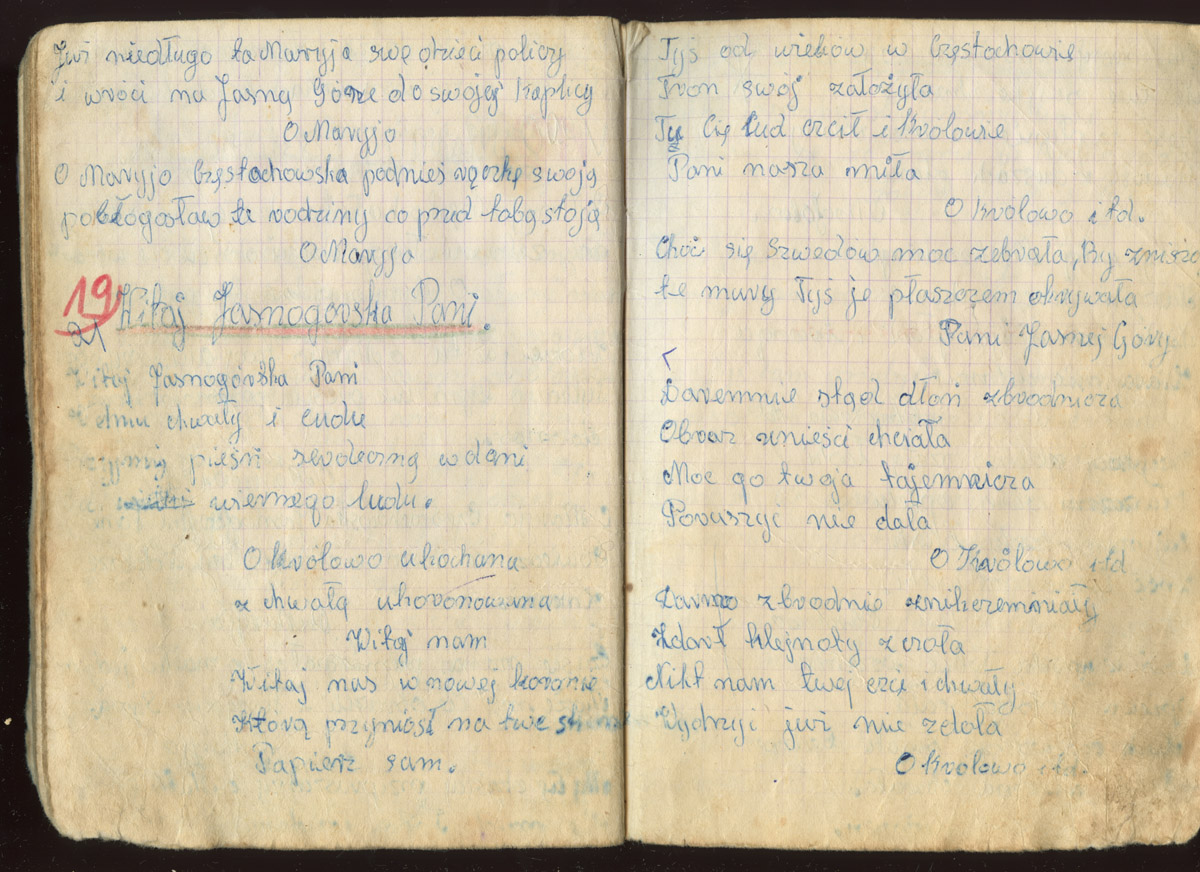 Już niedługo ta Maryja swe dzieci policzy
i wróci na Jasną Górze do swojej kaplicy
O Maryjo
O Maryjo Częstochowska podnieś rączkę swoją
pobłogosław te rodziny co przed tobą stoją
O Maryjo
19 Witaj Jasnogorska Pani.
21
Witaj Jasnogórska Pani
chwały i cudu
pieśń serdeczną w dani
wiernego ludu.
O królowo ukochana
z chwałą ukoronowana
Witaj nam
Witaj nas w nowej koronie
Którą przyniósł na twe
Papierz sam.
Tyś od wieków w Częstochowie
Tron swój założyła
Tu Cię lud czcił i Krolowie
Pani nasza miła
O krolowo i td.
Choć się Szwedów moc zebrała, By zniszc
te mury Tyś je płaszczem okrywała
Pani Jasnej Góry
Daremnie stąd dłoń zbrodnicza
Obraz znieści chciała
Moc go twoja tajemnicza
Poruszyć nie dała
O Królowo itd
Darmo zbrodnie
Zdarł klejnoty z czoła
Nikt nam twej czci i chwały
Wydrzyć już nie zdoła
O krolowo itd.